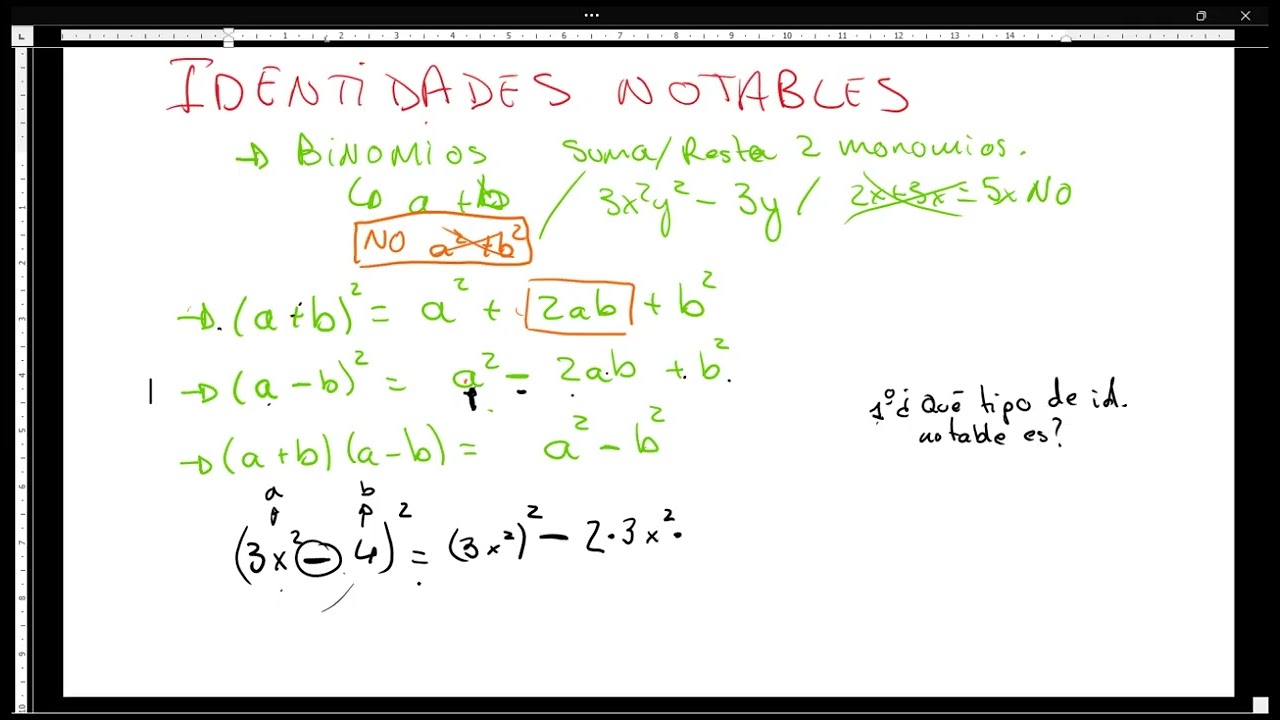 IDENTIDADES NOTABLES
→ BINOMIOS Suma/Resta 2 monomios.
↳ a + b / 3x²y² - 3y / 2x+3x = 5x NO
NO a²+b²
→ (a+b)² = a² + 2ab + b²
→ (a-b)² = a² - 2ab + b²
1º ¿Qué tipo de id.
notable es?
→ (a+b)(a-b) = a² - b²
a b
(3x² - 4)² = (3x²)² - 2·3x²·